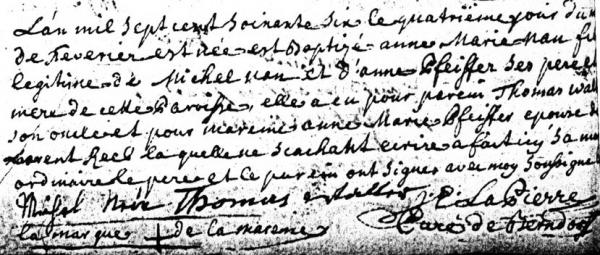 L'an mil sept cent soinante six le quatriéme jour du
de feverier est née est baptizé anne Marie Nau fi
legitime de Michel nau et d'anne Pfeiffer ses pere et
mere de cette Parrisse, elle a eu pour parein Thomas
son oncle et pour mareine anne Marie Pfeiffer epouse
Lorent Reeb la quelle ne scachant ecrire a fait icy sa
ordinaire le pere et le parein ont signer avec moy soussigné
Michel Thomas J: C: LaPierre
la marque de la mareine Curé de